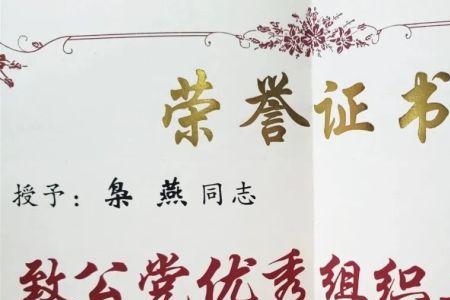 荣誉证书
授予：枭燕同志
致公党优秀组织